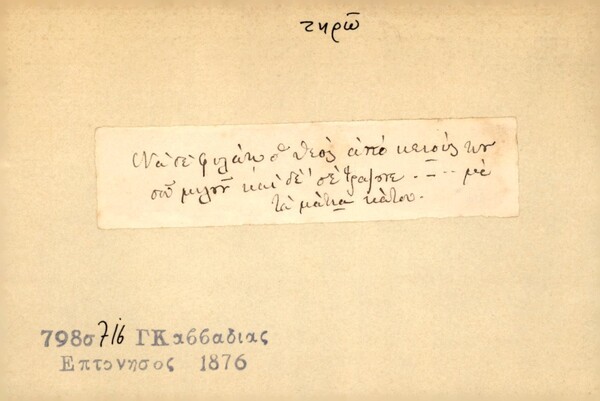 τηρῶ
Νὰ σὲ φιλάῃ ὁ θεὸς ἀπὸ κείους που
σοῦ μιλοῦν καὶ δὲ σὲ τρανε . — .. μὲ
τὰ μάτια κάτου.
798σ 716 ΓΚαββαδιας
Επτονησος 1876